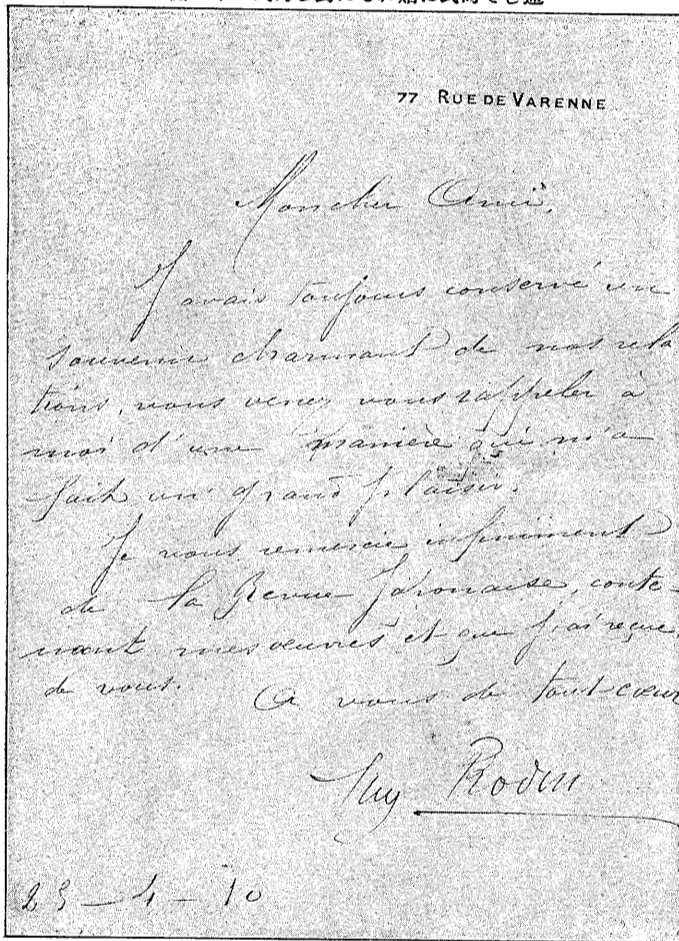 77 RUE DE VARENNE
Mon cher Ami,
J'avais toujours conservé un
souvenir charmant de nos rela
tions, vous venez vous rappeler à
moi d'une manière qui m'a
fait un grand plaisir.
Je vous remercie infiniment
de la Revue Japonaise, conte-
nant mes œuvres et que j'ai reçue
de vous. A vous de tout cœur
Aug Rodin
23 - 4 - 10